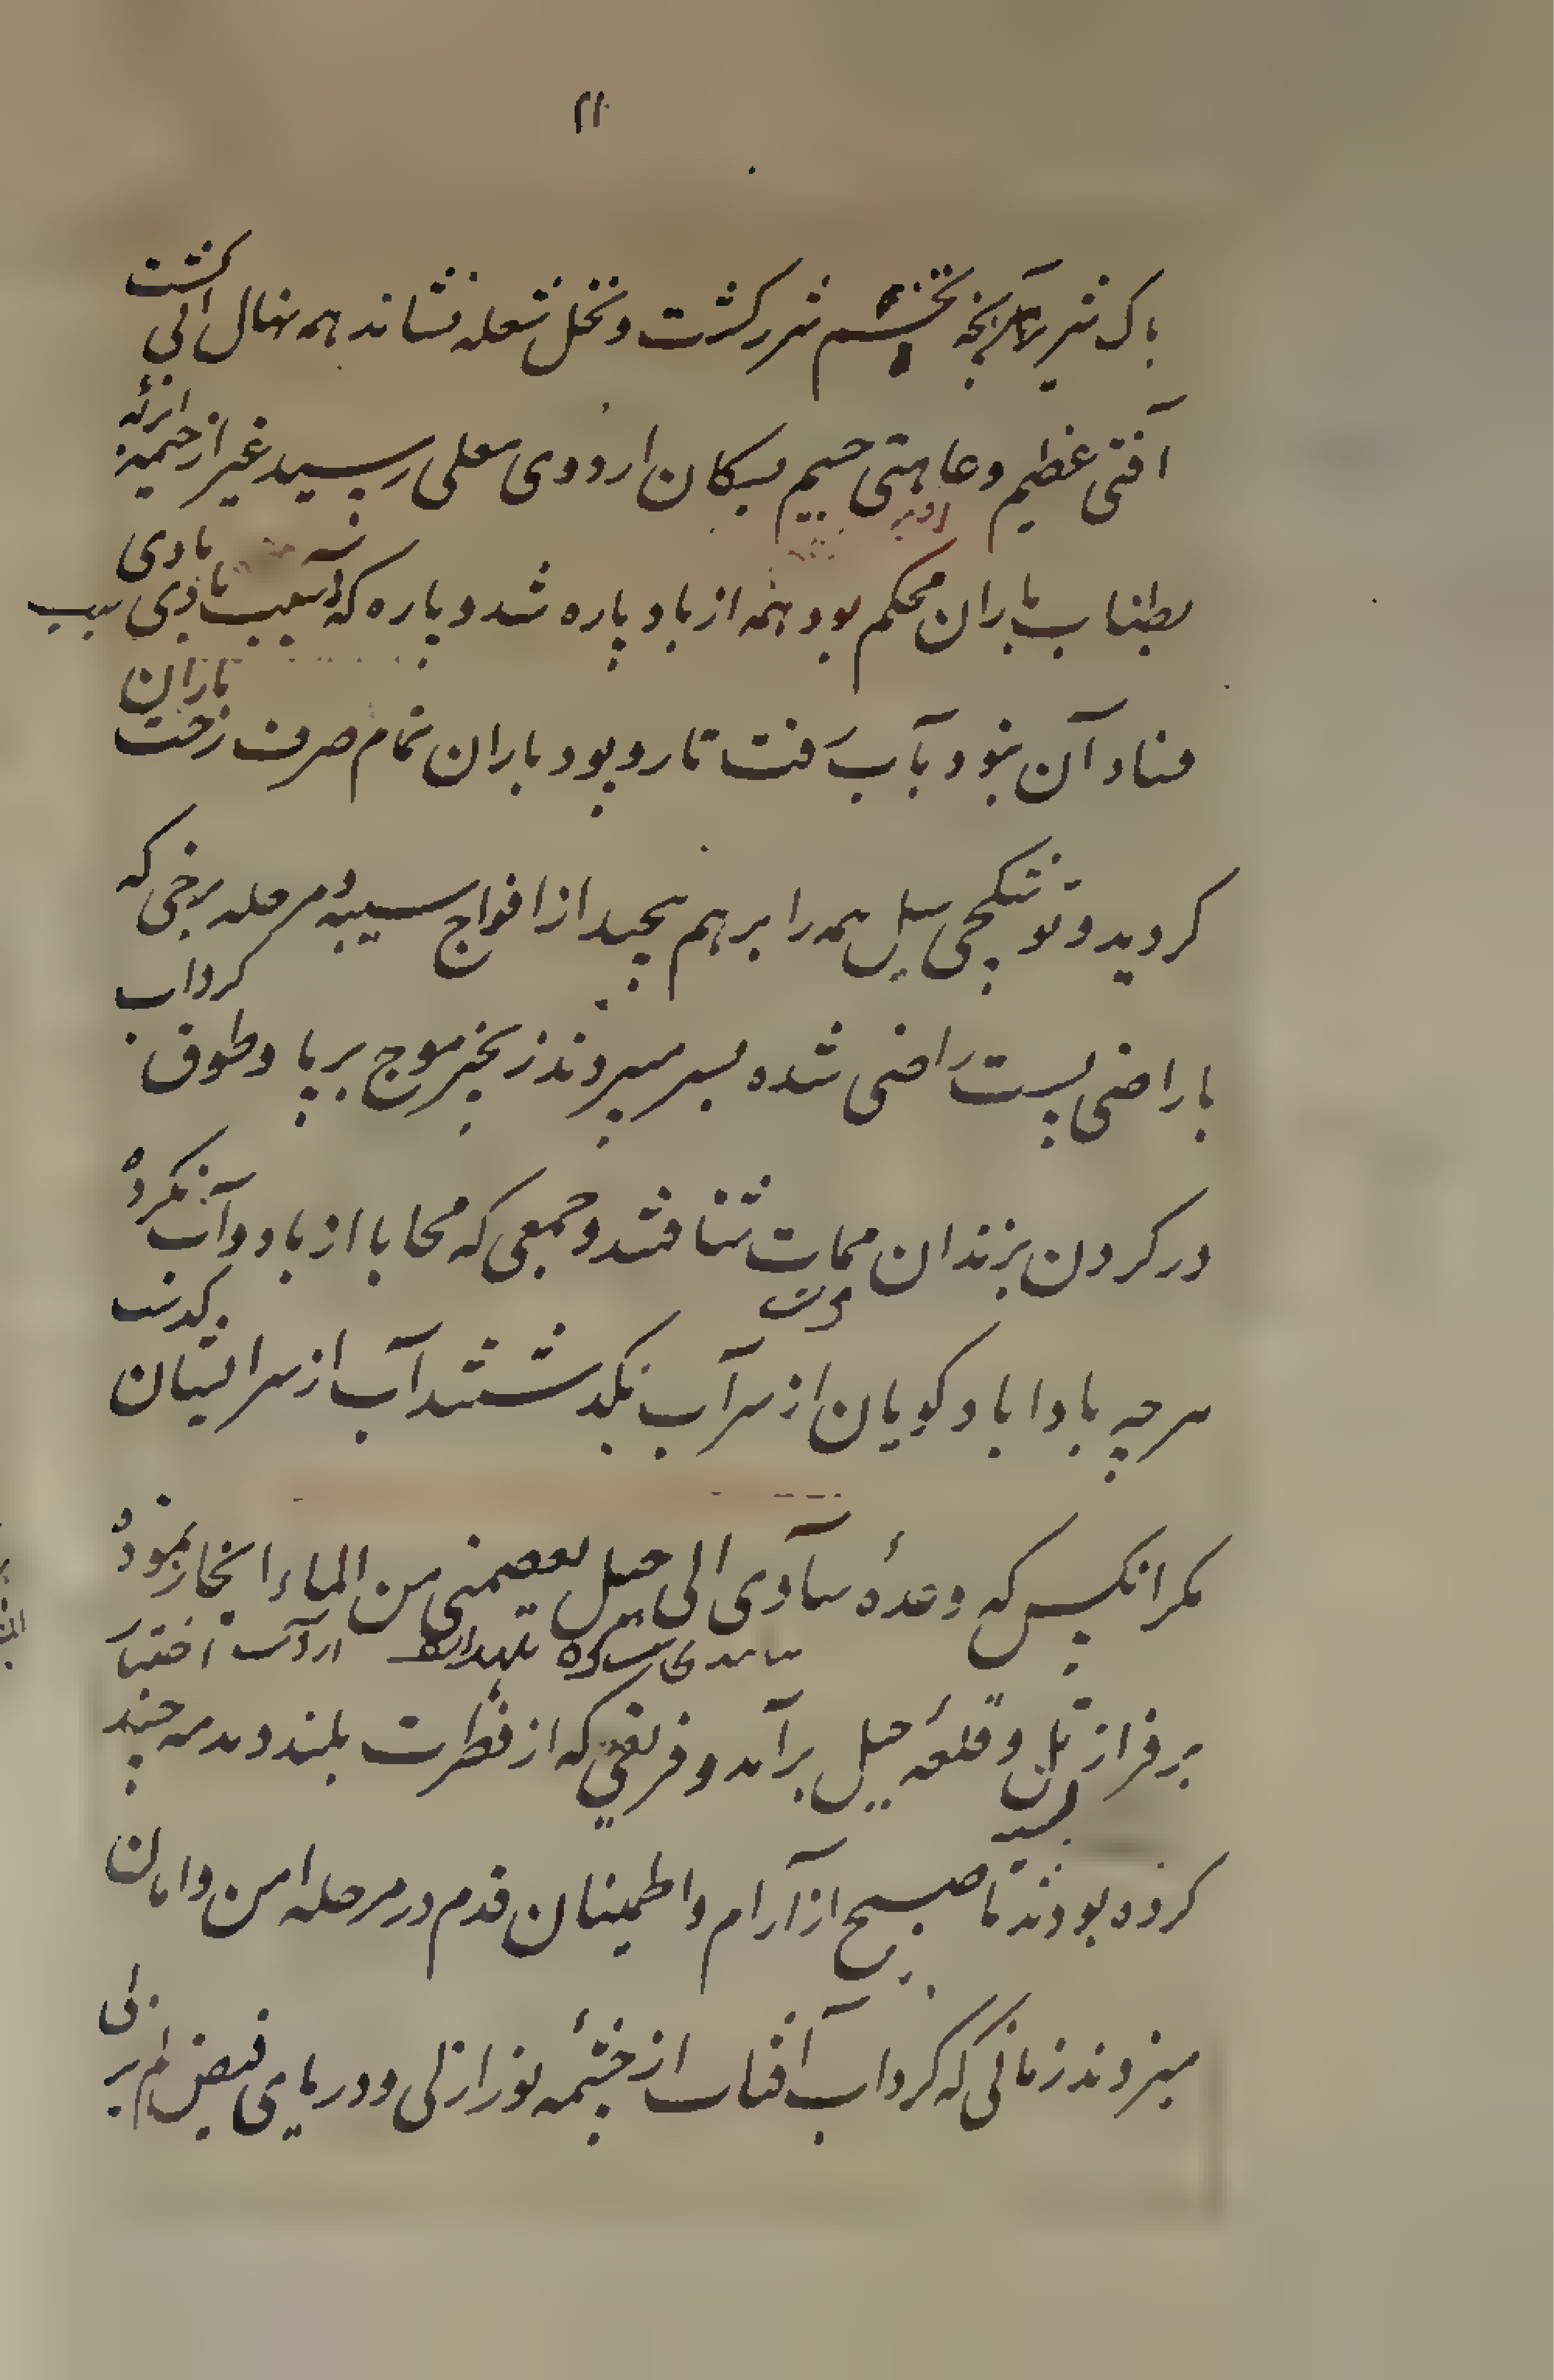 ۲۱
باک شیر بهر بخه تخم شرر کشت و نخل شعله نشاند همه نهال الی کشت
آفتی عظیم و عاهتی جسیم بسکان اردوی معلی رسید غیر از خیمه ابر که
بطناب باران محکم بود همه از باد پاره شد و پاره که آسیب بادی سبب
بادی
فناد آن بنود بآب رفت تار و پود باران تمام صرف رخت
باران
کردید و توشکچی سیل همه را بر هم پیچید از افواج سیبه و مرحله برخی که
با راضی پست راضی شده بسر میبردند زنجیر موج بر پا و طوق کرداب
در کردن بزندان ممات شتافتند و جمعی که محابا از باد و آب نکرده
موت
هر چه بادا باد کویان از سر آب نکذشتند آب از سر ایشان کذشت
مکر انکس که وعدهٔ سآوی الی جبل یعصمنی من الماء انجاز نموده
بر فراز تل و قلعهٔ جبل برآمد و فریقی که از فطرت بلند
کرده بودند تا صبح از آرام و اطمینان قدم در مرحله امن و امان
میزدند زمانی که کرداب آفتاب از چشمهٔ نور ازلی و دریای فیض لم یزلی